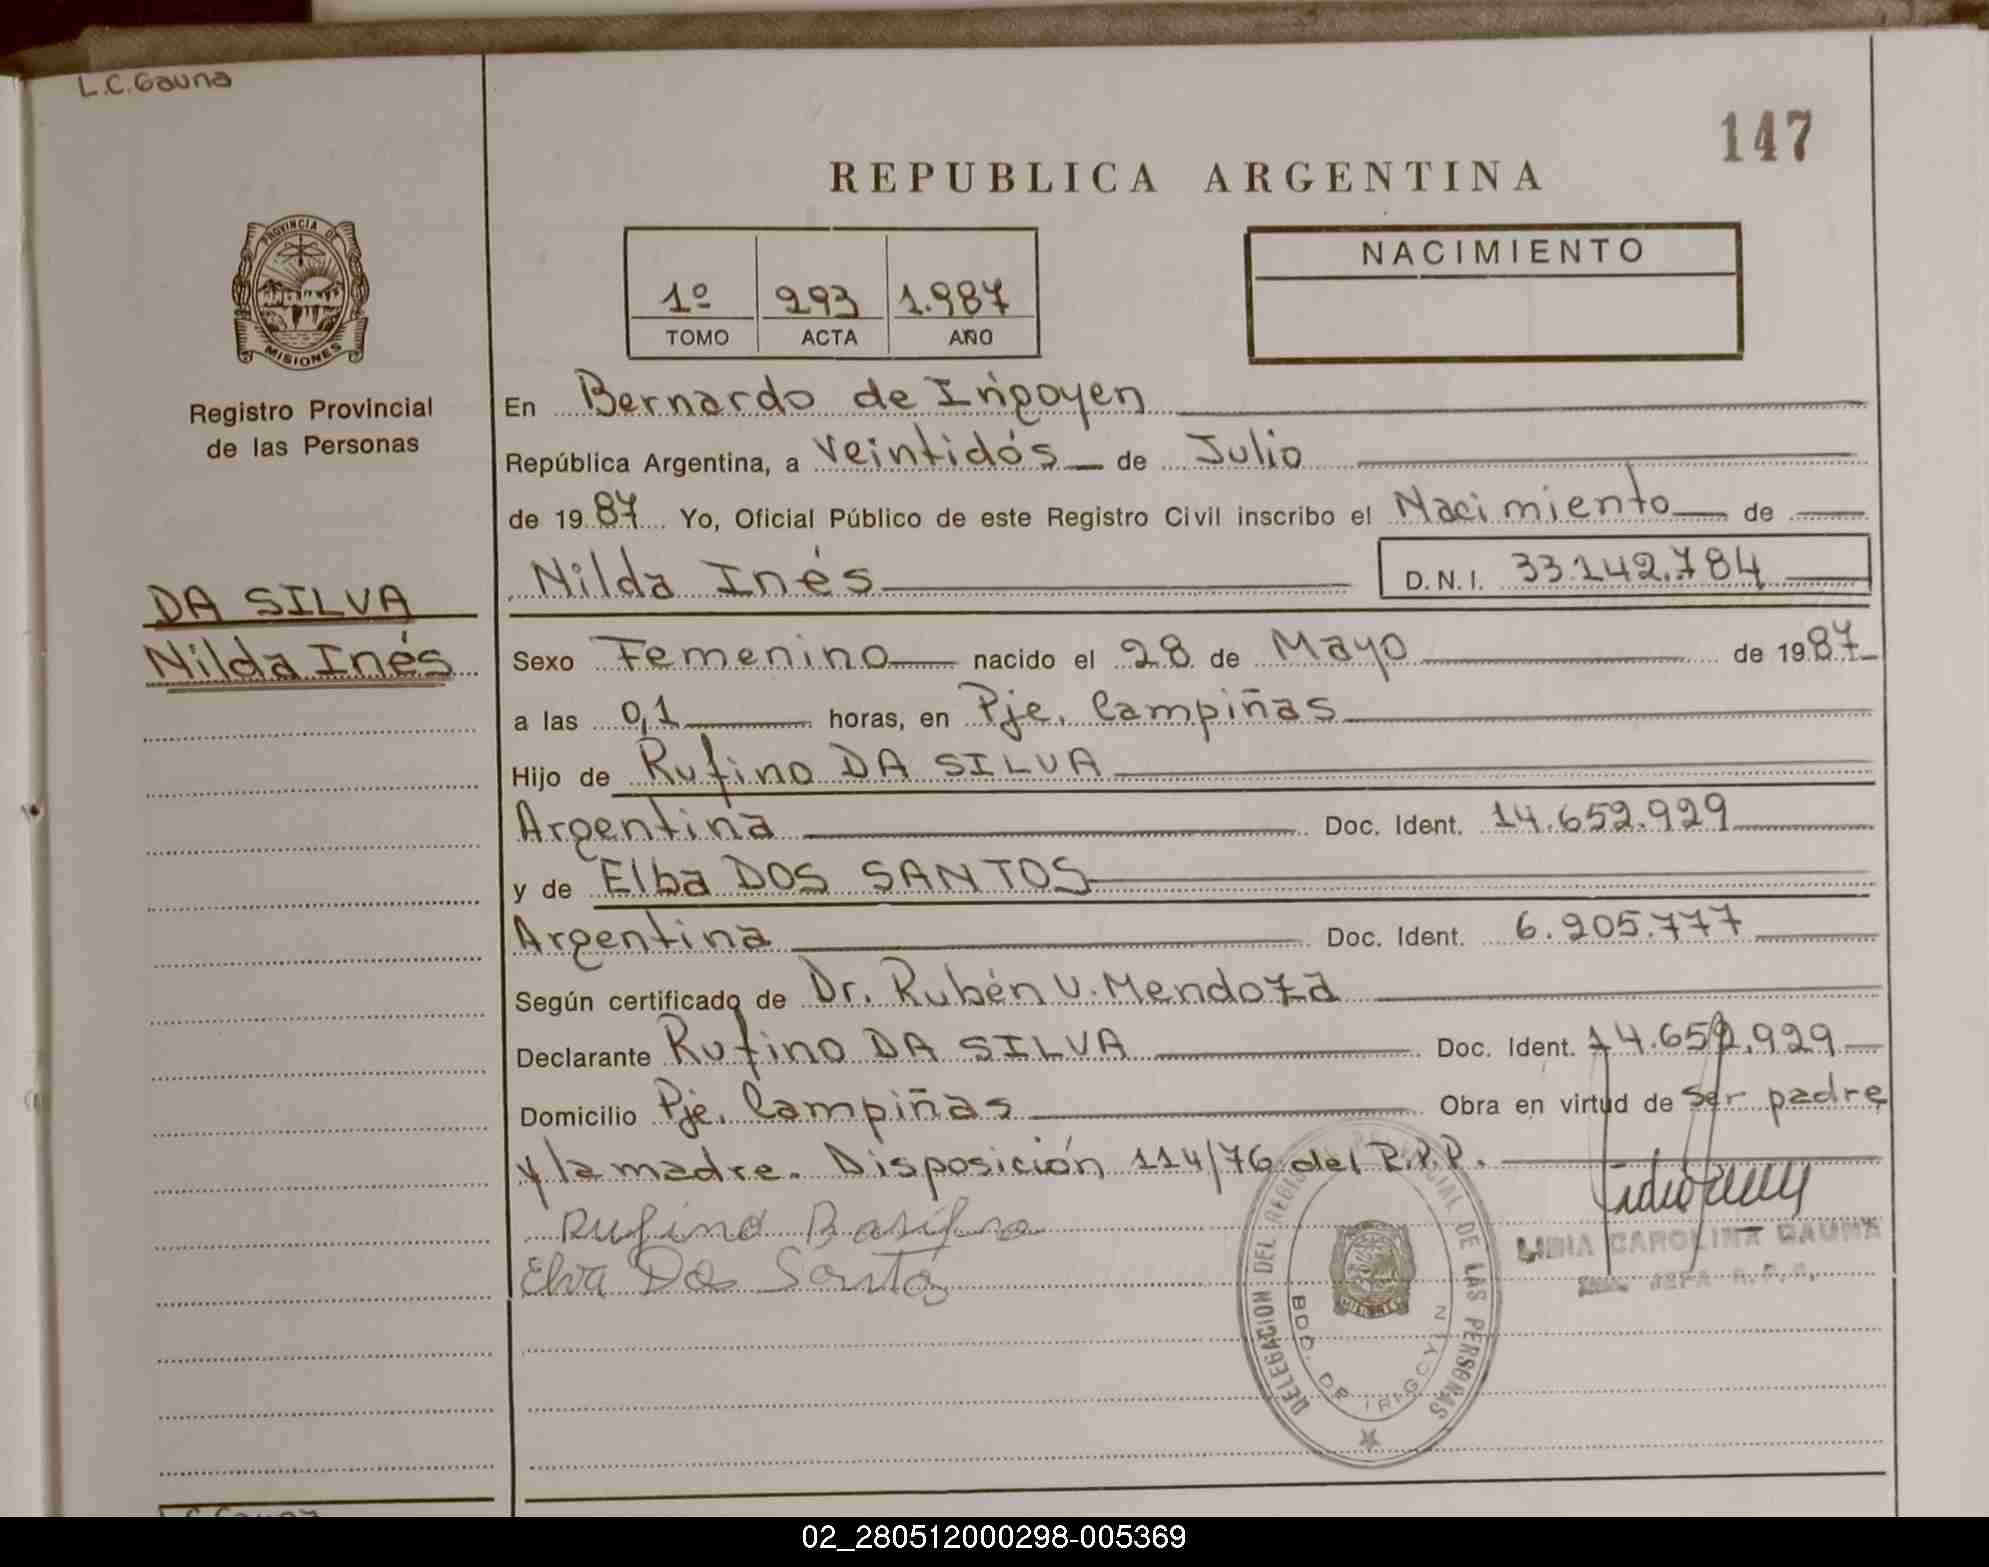 L.C. Gauna
147
REPUBLICA ARGENTINA
PROVINCIA DE
MISIONES
Registro Provincial
de las Personas
1º 293 1.987
TOMO ACTA AÑO
NACIMIENTO
En Bernardo de Irigoyen
República Argentina, a veintidós de Julio
de 1987 Yo, Oficial Público de este Registro Civil inscribo el Nacimiento de
Nilda Inés D.N.I. 33.142.784
DA SILVA
Nilda Inés
Sexo Femenino nacido el 28 de Mayo de 1987
a las 0,1 horas, en Pje. Campiñas
Hijo de Rufino DA SILVA
Argentina Doc. Ident. 14.652.929
y de Elba DOS SANTOS
Argentina Doc. Ident. 6.205.777
Según certificado de Dr. Rubén U. Mendoza
Declarante Rufino DA SILVA Doc. Ident. 14.652.929
Domicilio Pje. Campiñas Obra en virtud de ser padre
y la madre. Disposición 114/76 del R.P.P.
Rufino Dasilva
Elva Dos Santos
LIDIA CAROLINA GAUNA
JEFA R.P.P.
DELEGACION DEL REGISTRO PROVINCIAL DE LAS PERSONAS
BDO. DE IRIGOYEN
MISIONES
02_280512000298-005369